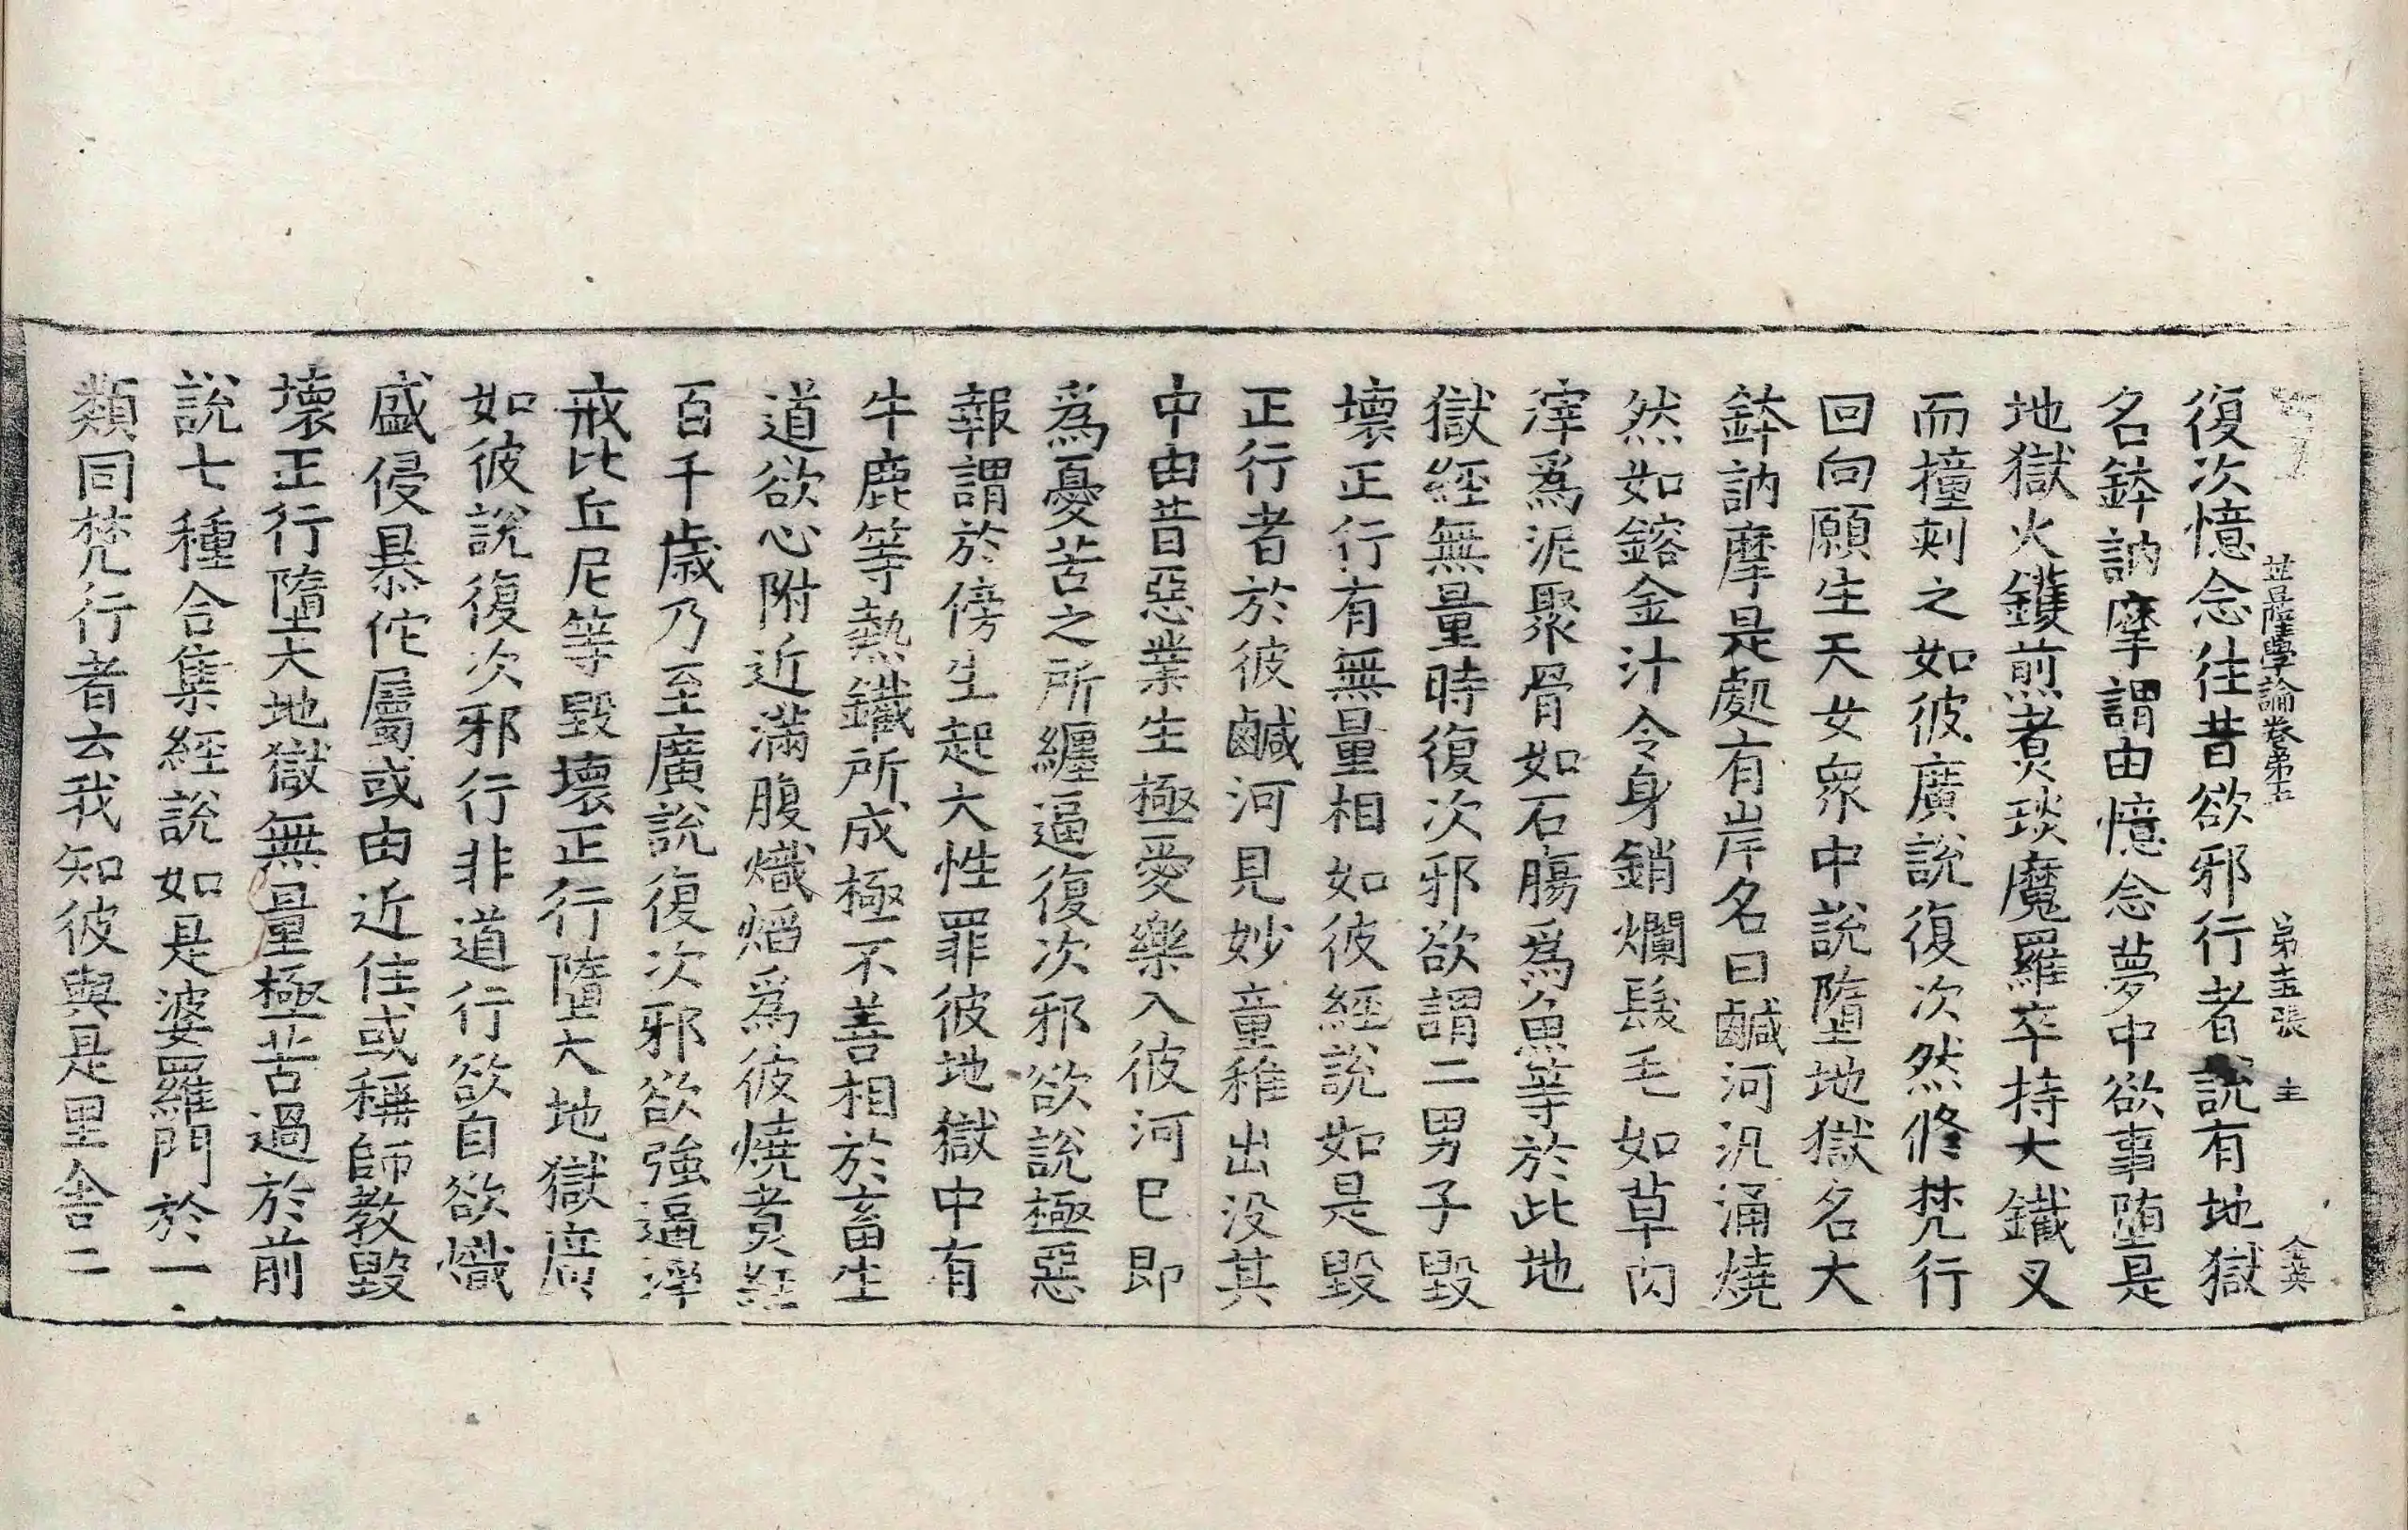 菩薩學論卷第五 第十五張 主 仝英
復次憶念往昔欲邪行者說有地獄
名鉢訥摩謂由憶念夢中欲事墮是
地獄火鑊煎煮琰魔羅卒持大鐵叉
而撞刺之如彼廣說復次然修梵行
回向願生天女衆中說墮地獄名大
鉢訥摩是處有岸名曰鹹河汎涌燒
然如鎔金汁令身銷爛髮毛如草肉
滓爲泥聚骨如石膓爲魚等於此地
獄經無量時復次邪欲謂二男子毀
壞正行有無量相如彼經說如是毀
正行者於彼鹹河見妙童稚出没其
中由昔惡業生極愛樂入彼河巳即
爲憂苦之所纏逼復次邪欲說極惡
報謂於傍生起大性罪彼地獄中有
牛鹿等熱鐵所成極不善相於畜生
道欲心附近滿腹熾熖爲彼燒煑經
百千歲乃至廣說復次邪欲強逼淨
戒比丘尼等毀壞正行墮大地獄廣
如彼說復次邪行非道行欲自欲熾
盛侵暴佗屬或由近住或稱師教毀
壞正行墮大地獄無量極苦過於前
說七種合集經說如是婆羅門於一
類同梵行者去我知彼與是里舍二